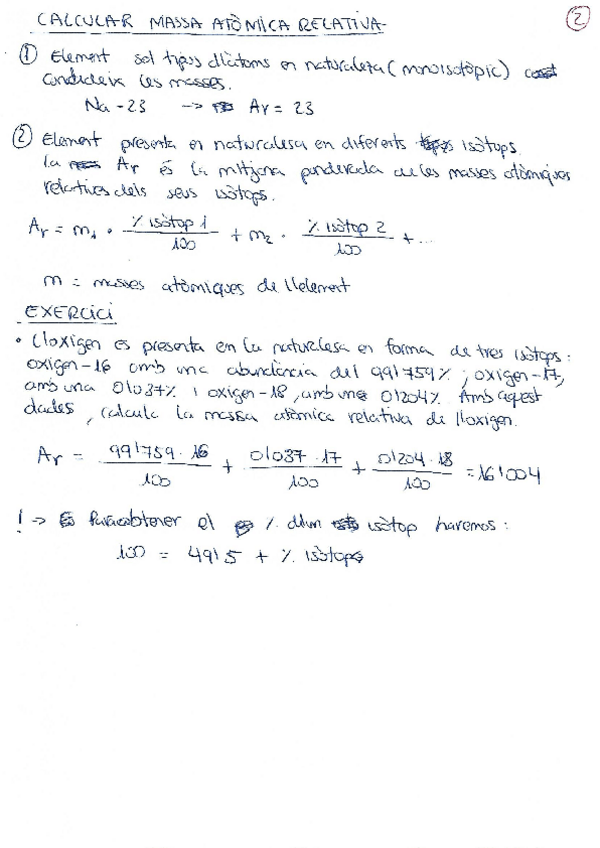 CALCULAR MASSA ATÒMICA RELATIVA
2
① Element sol tipus d'àtoms en naturaleza (monoisotòpic)
les masses.
Na-23 -> Ar = 23
② Element presenta en naturalesa en diferents isòtops.
la Ar és la mitjana ponderada de les masses atòmiques
relatives dels seus isòtops.
Ar = m1 · % isòtop 1 / 100 + m2 · % isòtop 2 / 100 + ...
m = masses atòmiques de l'element
EXERCICI
• L'oxigen es presenta en la naturalesa en forma de tres isòtops:
oxigen-16 amb una abundància del 99'759%; oxigen-17,
amb una 0'037% i oxigen-18, amb una 0'204%. Amb aquest
dades, calcula la massa atòmica relativa de l'oxigen.
Ar = 99'759 · 16 / 100 + 0'037 · 17 / 100 + 0'204 · 18 / 100 = 16'004
! -> Para obtener el % d'un isòtop haremos:
100 = 49'5 + % isòtop